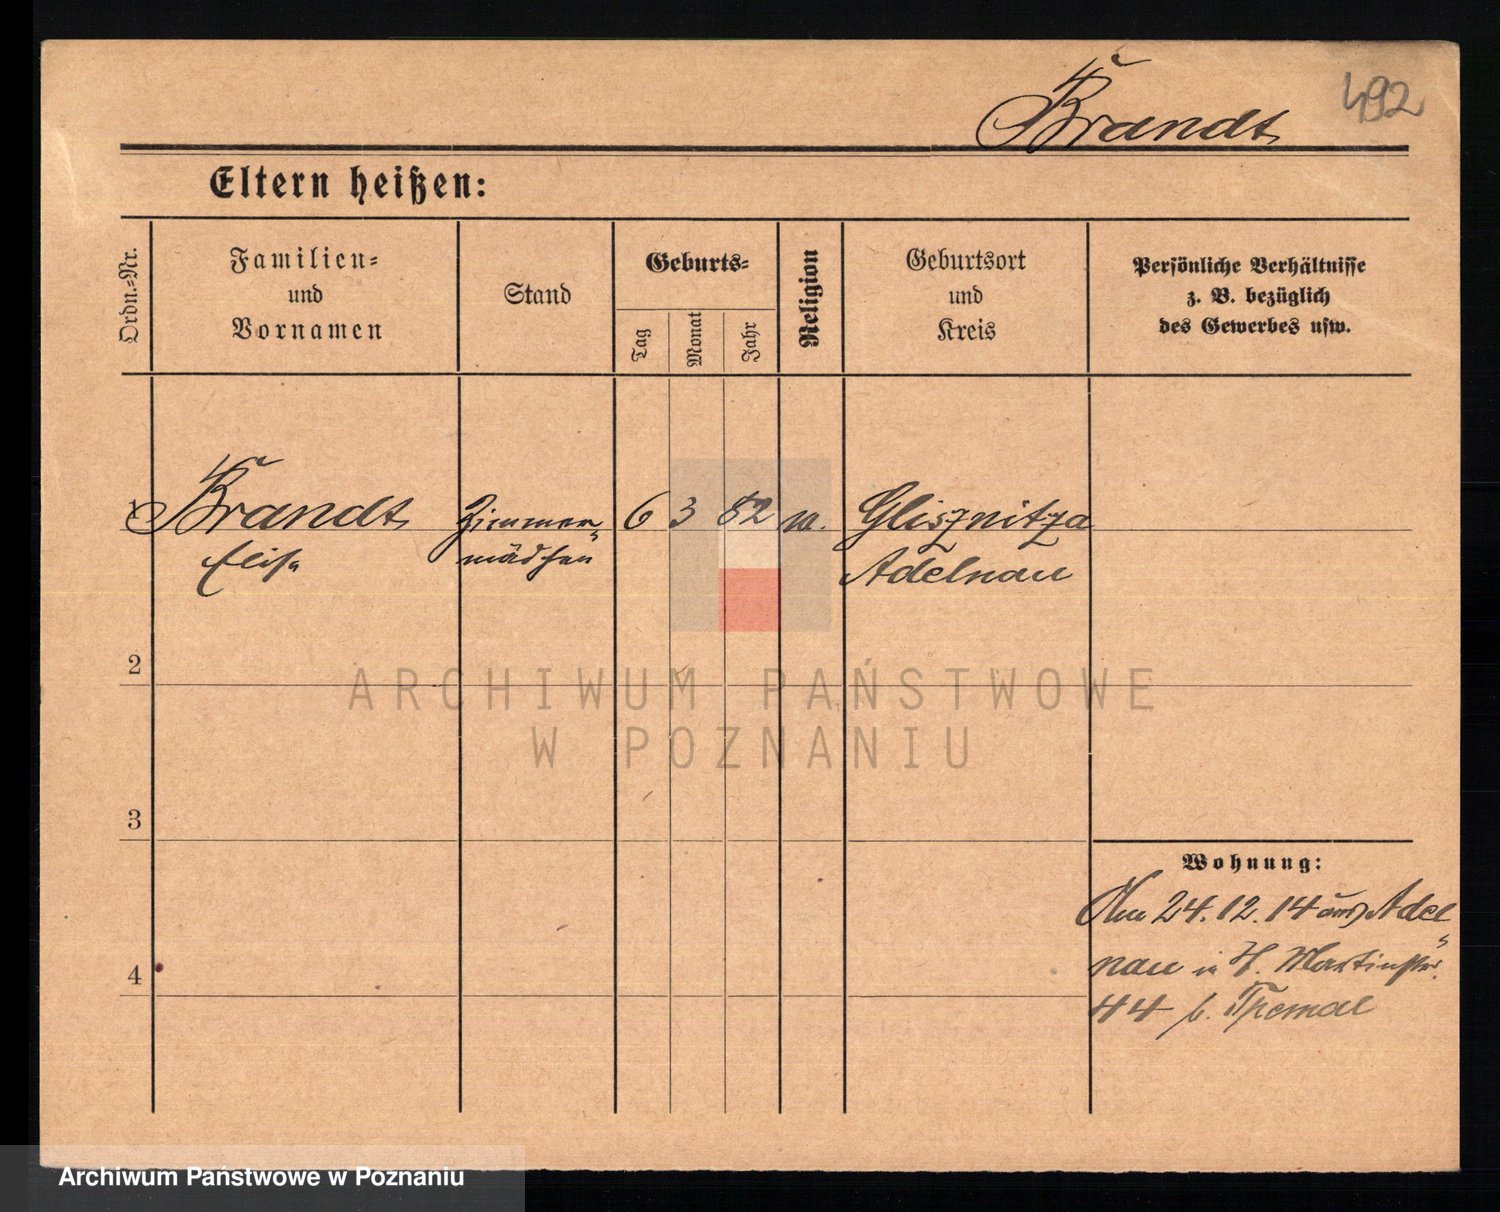 492
Brandt
Eltern heißen:
Ordn.-Nr.
Familien-
und
Vornamen
Stand
Geburts-
Tag
Monat
Jahr
Religion
Geburtsort
und
Kreis
Persönliche Verhältnisse
z. B. bezüglich
des Gewerbes usw.
1 Brandt Zimmer= 6 3 82 Glisznitza
Elise mädchen Adelnau
2
3
4
ARCHIWUM PAŃSTWOWE
W POZNANIU
Wohnung:
Am 24.12.14 aus Adel=
nau in Martinstr.
44 b.
Archiwum Państwowe w Poznaniu